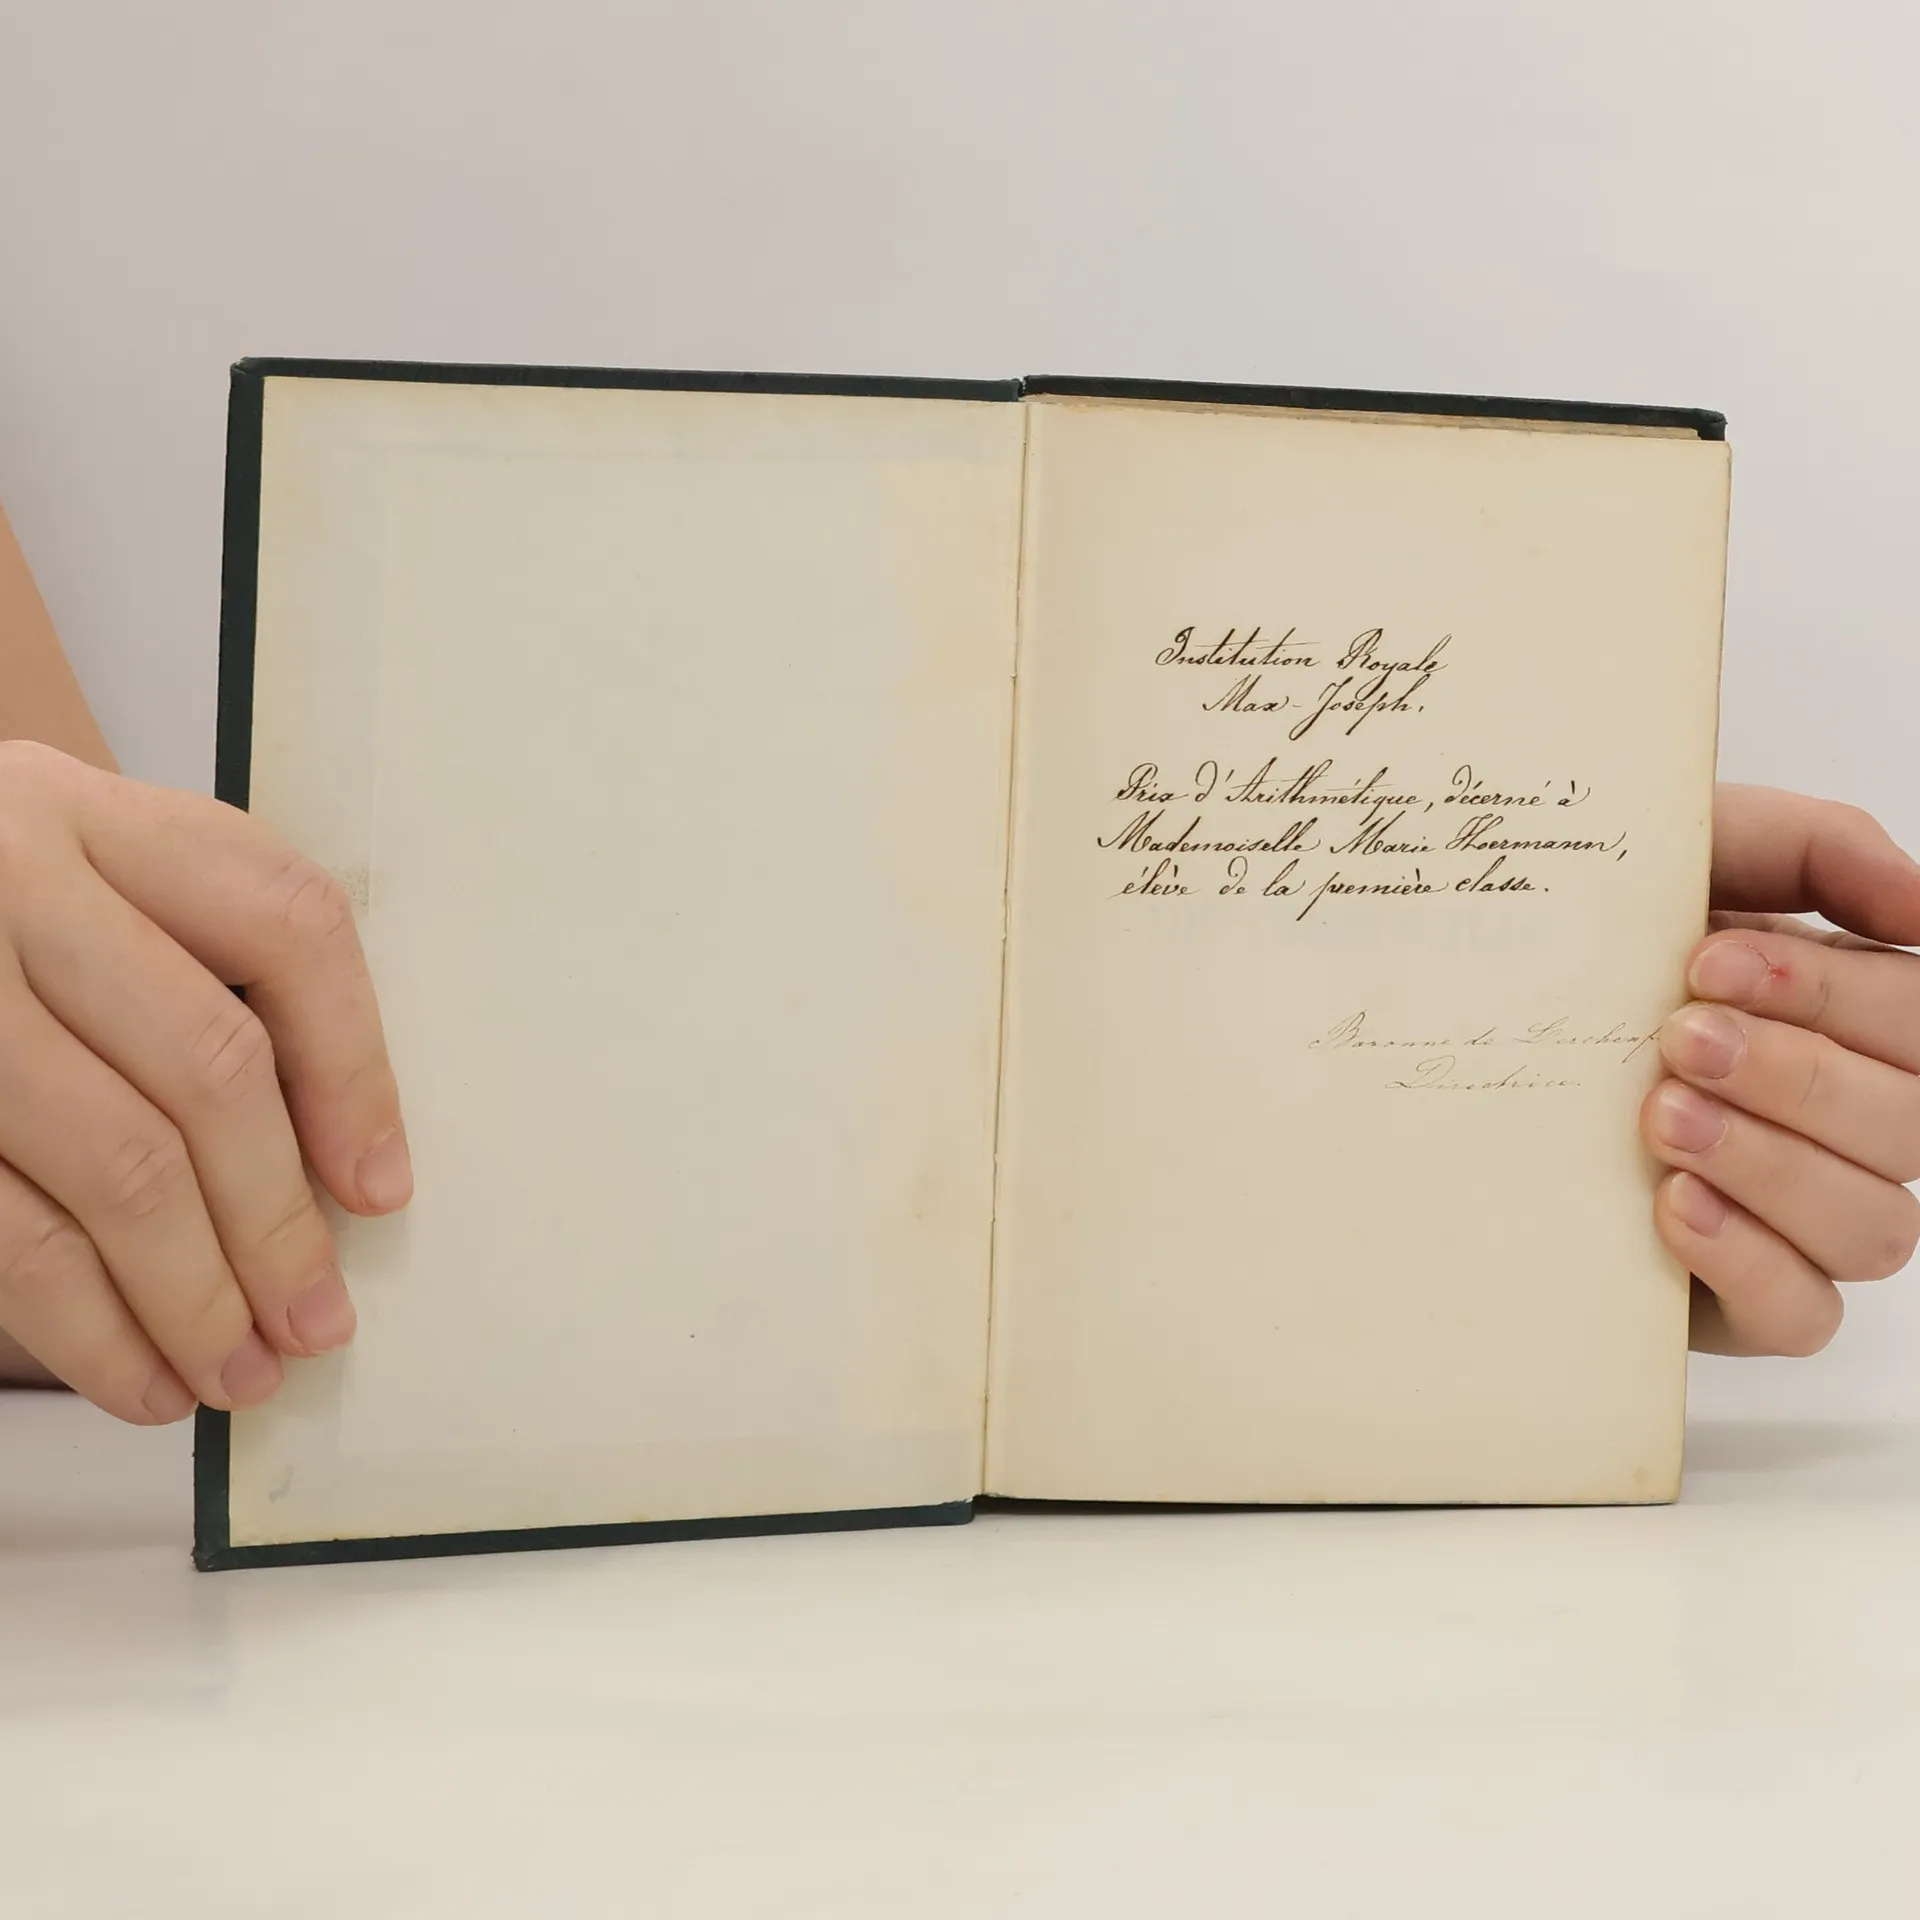 Institution Royale
Max-Joseph.
Prix d'Arithmétique, décerné à
Mademoiselle Marie Hoermann,
élève de la première classe.
Baronne de
Directrice.